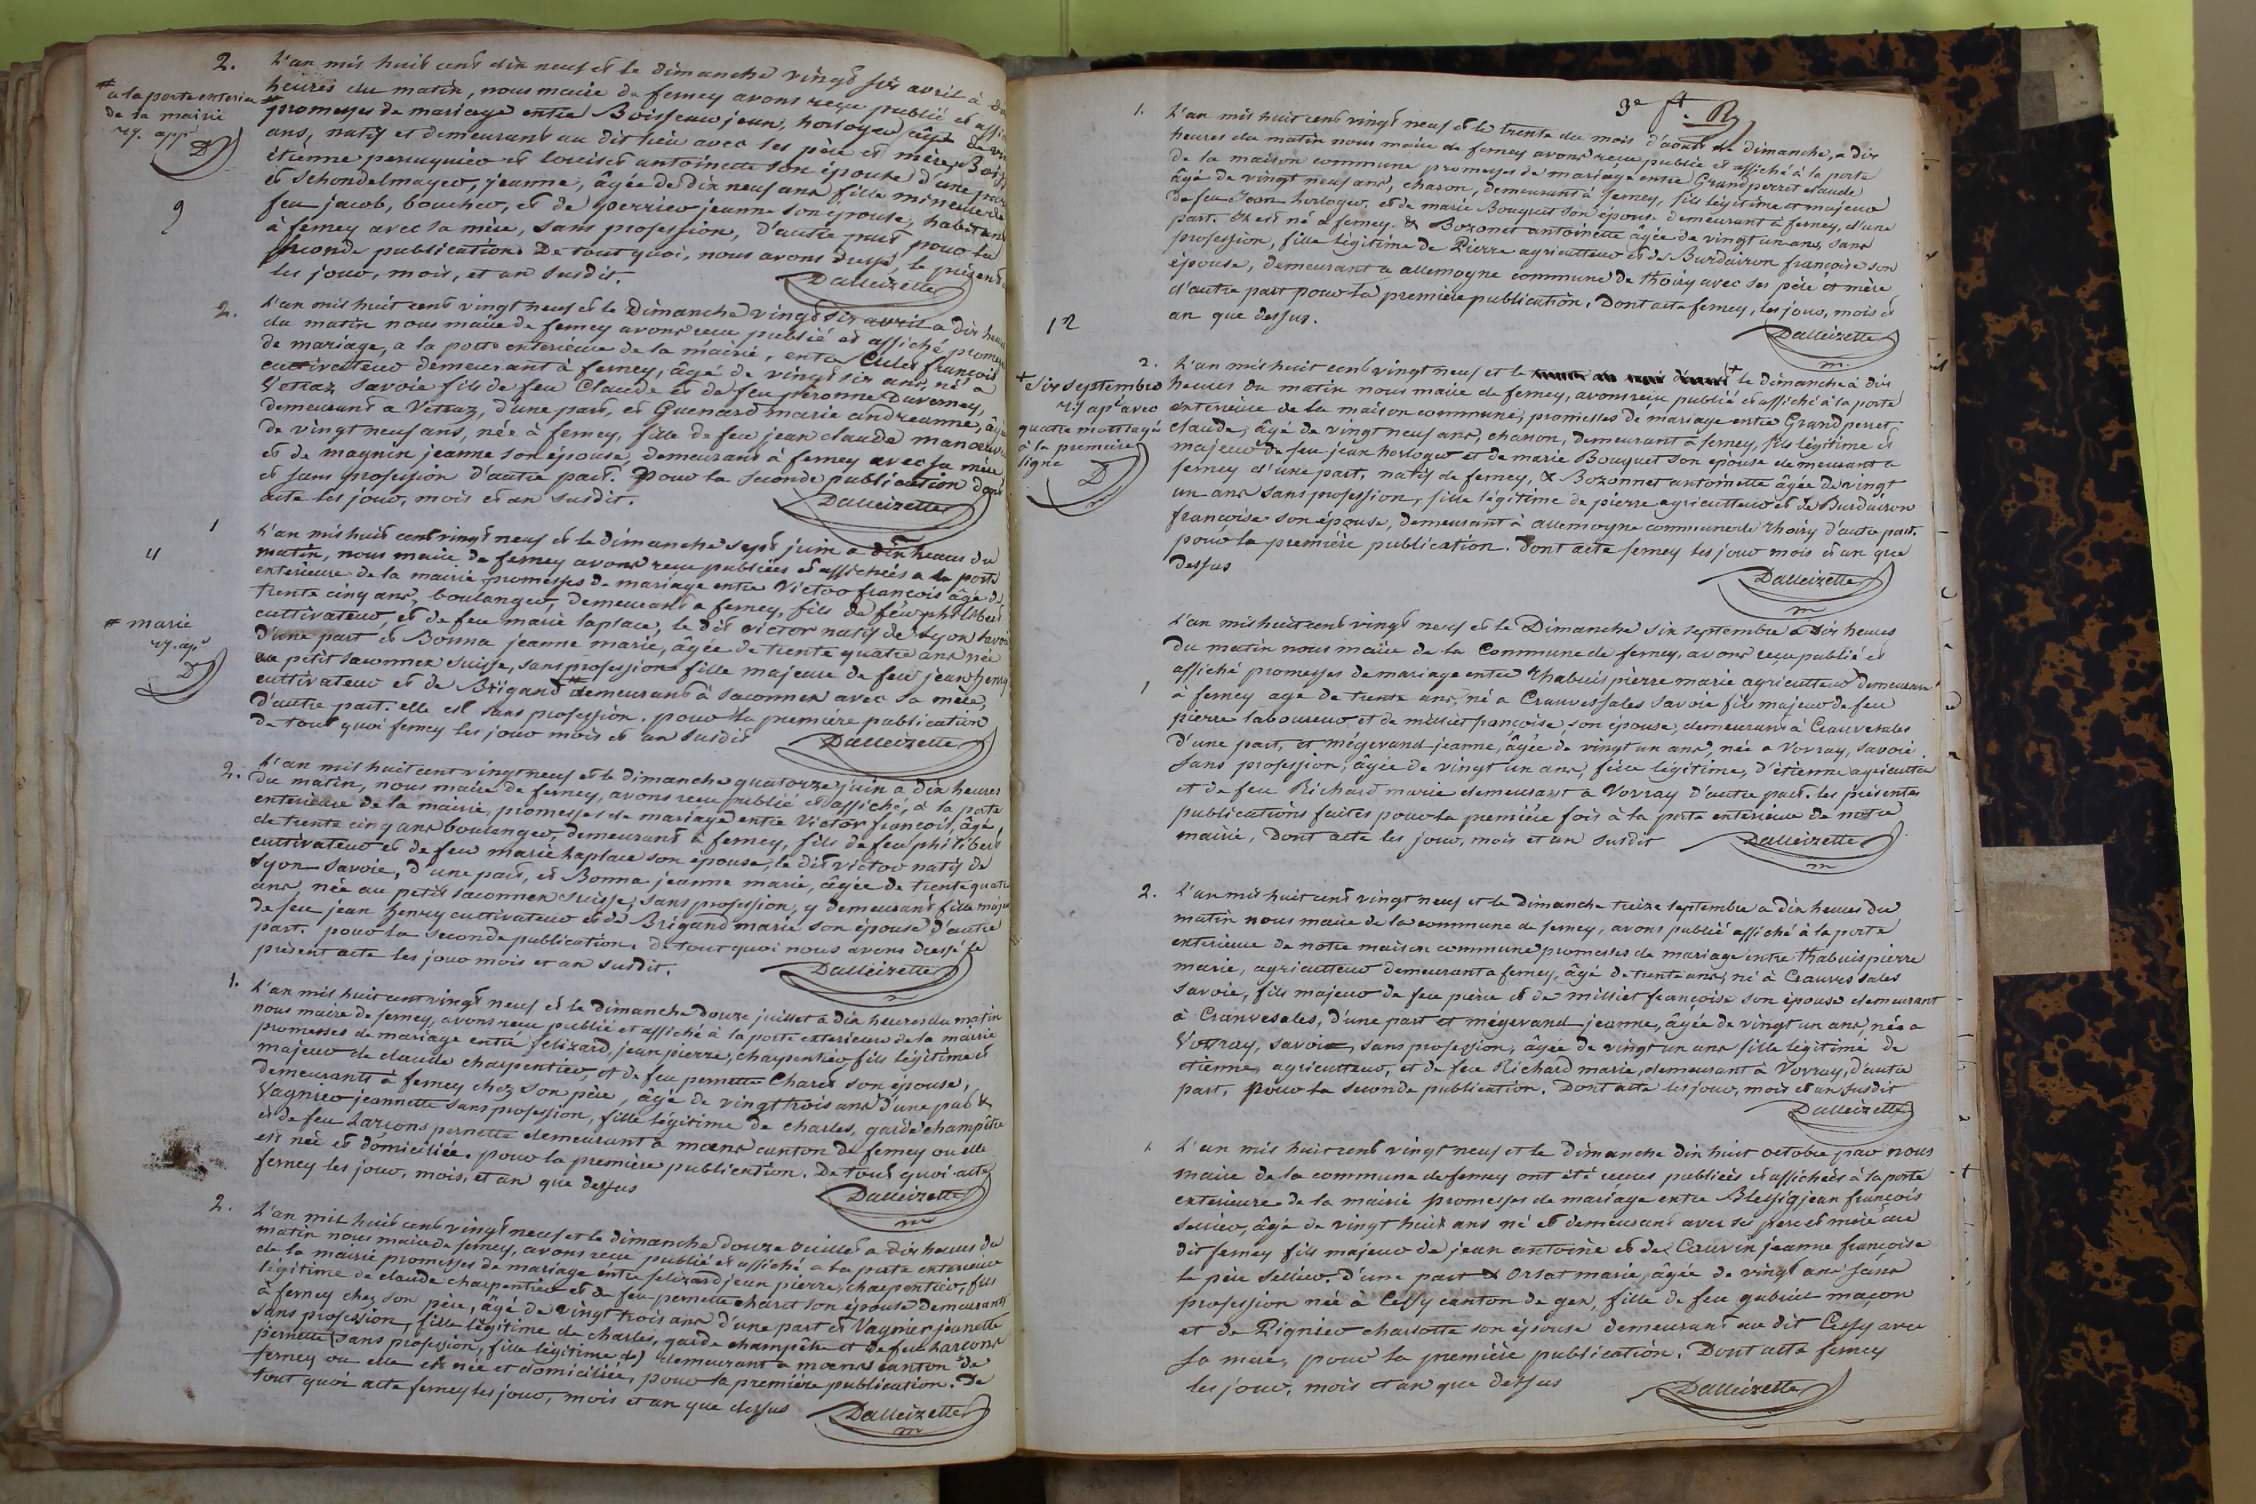 2. L'an mil huit cent dix neuf et le dimanche vingt six avril à
heures du matin, nous maire de ferney avons reçu publié et
# à la porte exterieu
de la mairie
ry. app
D
promesses de mariage entre Boisseau jean, horloger âgé de
ans, natif et demeurant au dit lieu avec ses père et mère,
étienne perruquier et louise antoinette son épouse d'une part
et Schondelmayer, jeanne, âgée de dix neuf ans fille mineure de
feu jacob, boucher, et de perrier jeanne son épouse, habitant
à ferney avec sa mère, sans profession, d'autre part pour la
9
seconde publication. De tout quoi, nous avons dressé le présent
les jour, mois, et an susdit.
Dalleizette
2. L'an mil huit cent vingt neuf et le Dimanche vingt six avril a dix heures
du matin nous maire de ferney avons reçu publié et affiché promesses
de mariage, a la porte exterieure de la mairie, entre françois
cultivateur demeurant à ferney, âgé de vingt six ans, né a
Vettraz savoie fils de feu Claude et de feu péronne Duverney,
demeurant a Vettraz, d'une part, et Guenard marie andreanne, âgée
de vingt neuf ans, née à ferney, fille de feu jean claude manoeuvre
et de magnin jeanne son épouse, demeurant à ferney avec sa mère
et sans profession d'autre part. Pour la seconde publication dont
acte les jour, mois et an susdit.
Dalleizette
1 L'an mil huit cent vingt neuf et le dimanche sept juin a dix heures du
11
matin, nous maire de ferney avons reçu publiées et affichées a la porte
exterieure de la mairie promesses de mariage entre Victor françois âgé de
trente cinq ans, boulanger, demeurant a ferney, fils de feu philibert
cultivateur, et de feu marie laplace, le dit victor natif de Lyon savoie
# marie
ry. ap
D
d'une part et Bonna jeanne marie, âgée de trente quatre ans née
au petit saconnex suisse, sans profession fille majeure de feu jean henry
cultivateur et de Brigand # demeurant à saconnex avec sa mère,
d'autre part. elle est sans profession. pour la première publication
de tout quoi ferney les jour mois et an susdit
Dalleizette
2. L'an mil huit cent vingt neuf et le dimanche quatorze juin a dix heures
du matin, nous maire de ferney, avons reçu publié et affiché, à la porte
exterieure de la mairie, promesses de mariage entre Victor françois, âgé
de trente cinq ans boulanger, demeurant à ferney, fils de feu philibert
cultivateur et de feu marie Laplace son épouse, le dit victor natif de
Lyon savoie, d'une part, et Bonna jeanne marie, âgée de trente quatre
ans, née au petit saconnex suisse, sans profession, y demeurant fille majeure
de feu jean henry cultivateur et de Brigand marie son épouse d'autre
part. pour la seconde publication. de tout quoi nous avons dressé le
présent acte les jour mois et an susdit.
Dalleizette
1. L'an mil huit cent vingt neuf et le dimanche douze juillet a dix heures du matin
nous maire de ferney, avons reçu publié et affiché à la porte exterieure de la mairie
promesses de mariage entre felizard, jean pierre, charpentier fils légitime et
majeur de claude charpentier, et de feu pernette Charet son épouse,
demeurants à ferney chez son père, âgé de vingt trois ans d'une part &
Vagnier jeannette sans profession, fille légitime de charles, garde champêtre
et de feu Larcons pernette demeurant à moens canton de ferney ou elle
est née et domiciliée. pour la première publication. De tout quoi acte
ferney les jour, mois, et an que dessus
Dalleizette
2. L'an mil huit cent vingt neuf et le dimanche douze Juillet a dix heures du
matin nous maire de ferney, avons reçu publié et affiché a la porte exterieure
de la mairie promesses de mariage entre felizard jean pierre, charpentier, fils
légitime de claude charpentier et de feu pernette charet son épouse demeurants
à ferney chez son père, âgé de vingt trois ans d'une part et Vagnier jeannette
sans profession, fille légitime de charles, garde champêtre et de feu Larcons
pernette (sans profession, fille légitime de) demeurant a moens canton de
ferney ou elle est née et domiciliée, pour la première publication. De
tout quoi acte ferney les jour, mois et an que dessus
Dalleizette
3e ft. R
1. L'an mil huit cent vingt neuf et le trente du mois d'août dimanche, a dix
heures du matin nous maire de ferney avons reçu publié et affiché à la porte
de la maison commune promesses de mariage entre Grandperret claude
âgé de vingt neuf ans, charon, demeurant à ferney, fils légitime et majeur
de feu Jean horloger, et de marie Bouquet son épouse demeurant à ferney, d'une
part. Il est né a ferney. & Bozonet antoinette âgée de vingt un ans, sans
profession, fille légitime de Pierre agriculteur et de Burdairon françoise son
épouse, demeurant a allemogne commune de thoiry avec ses père et mère
d'autre part pour la première publication. Dont acte ferney, les jour, mois et
an que dessus.
12
Dalleizette
2. L'an mil huit cent vingt neuf et le + le dimanche à dix
+ Six septembre
ry apé avec
quatre mots rayés
à la première
ligne
D
heures du matin nous maire de ferney, avons reçu publié et affiché à la porte
exterieure de la maison commune, promesses de mariage entre Grandperret
claude, âgé de vingt neuf ans, charron, demeurant à ferney, fils légitime et
majeur de feu jean horloger et de marie Bouquet son épouse demeurant a
ferney d'une part, natif de ferney, & Bozonnet antoinette âgée de vingt
un ans sans profession, fille légitime de pierre agriculteur et de Burdairon
françoise son épouse, demeurant à allemogne commune de thoiry d'autre part.
pour la première publication. Dont acte ferney les jour mois et an que
dessus
Dalleizette
L'an mil huit cent vingt neuf et le Dimanche six septembre a dix heures
du matin nous maire de la Commune de ferney, avons reçu publié et
affiché promesses de mariage entre Thabuis pierre marie agriculteur demeurant
1 à ferney agé de trente ans, né a Cranvessales savoie fils majeur de feu
pierre laboureur et de milliet françoise, son épouse, demeurant à Cranvesales
d'une part, et mégevand jeanne, âgée de vingt un ans, née a Vovray, savoie
sans profession, âgée de vingt un ans, fille légitime, d'étienne agriculteur
et de feu Richard marie demeurant a Vovray d'autre part. les présentes
publications faites pour la première fois à la porte exterieure de notre
mairie, Dont acte les jour, mois et an susdit
Dalleizette
2. L'an mil huit cent vingt neuf et le dimanche treize septembre a dix heures du
matin nous maire de la commune de ferney, avons publié affiché à la porte
exterieure de notre maison commune promesses de mariage entre thabuis pierre
marie, agriculteur demeurant a ferney, âgé de trente ans, né à Cranves sales
savoie, fils majeur de feu pierre et de milliet françoise son épouse demeurant
à Cranvesales, d'une part et mégevand jeanne, âgée de vingt un ans, née a
Vovray, savoie, sans profession, âgée de vingt un ans fille légitime de
étienne agriculteur, et de feu Richard marie, demeurant à Vovray, d'autre
part, pour la seconde publication. Dont acte les jour, mois et an susdit
Dalleizette
1 L'an mil huit cent vingt neuf et le dimanche dix huit octobre par nous
maire de la commune de ferney ont été reçues publiées et affichées à la porte
exterieure de la mairie promesses de mariage entre Blessig jean françois
sellier, âgé de vingt huit ans né et demeurant avec ses pere et mère au
dit ferney fils majeur de jean antoine et de Cauvin jeanne françoise
le père sellier. d'une part & Orsat marie, âgée de vingt ans sans
profession née à Cessy canton de gex, fille de feu gabriel maçon
et de Pignier charlotte son épouse demeurant au dit Cessy avec
sa mere, pour la première publication. Dont acte ferney
les jour, mois et an que dessus
Dalleizette